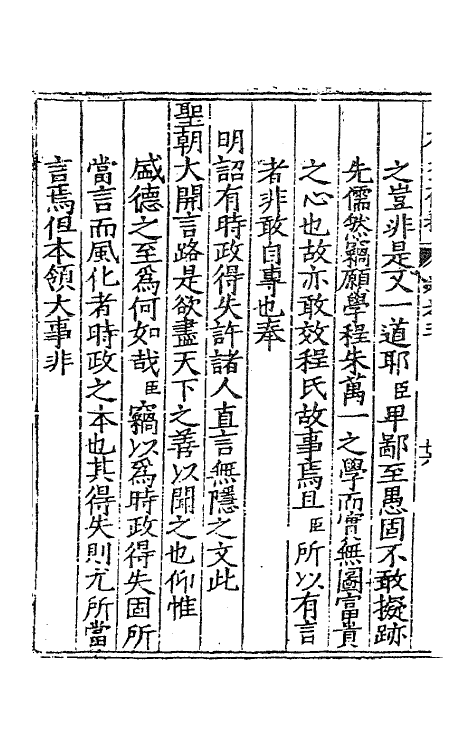 之豈非是又一道耶臣卑鄙至愚固不敢擬跡
先儒然竊願學程朱萬一之學而實無圖富貴
之心也故亦敢效程氏故事焉且臣所以有言
者非敢自專也奉
明詔有時政得失許諸人直言無隱之文此
聖朝大開言路是欲盡天下之善以聞之也仰惟
盛德之至爲何如哉臣竊以爲時政得失固所
當言而風化者時政之本也其得失則尤所當
言焉但本領大事非